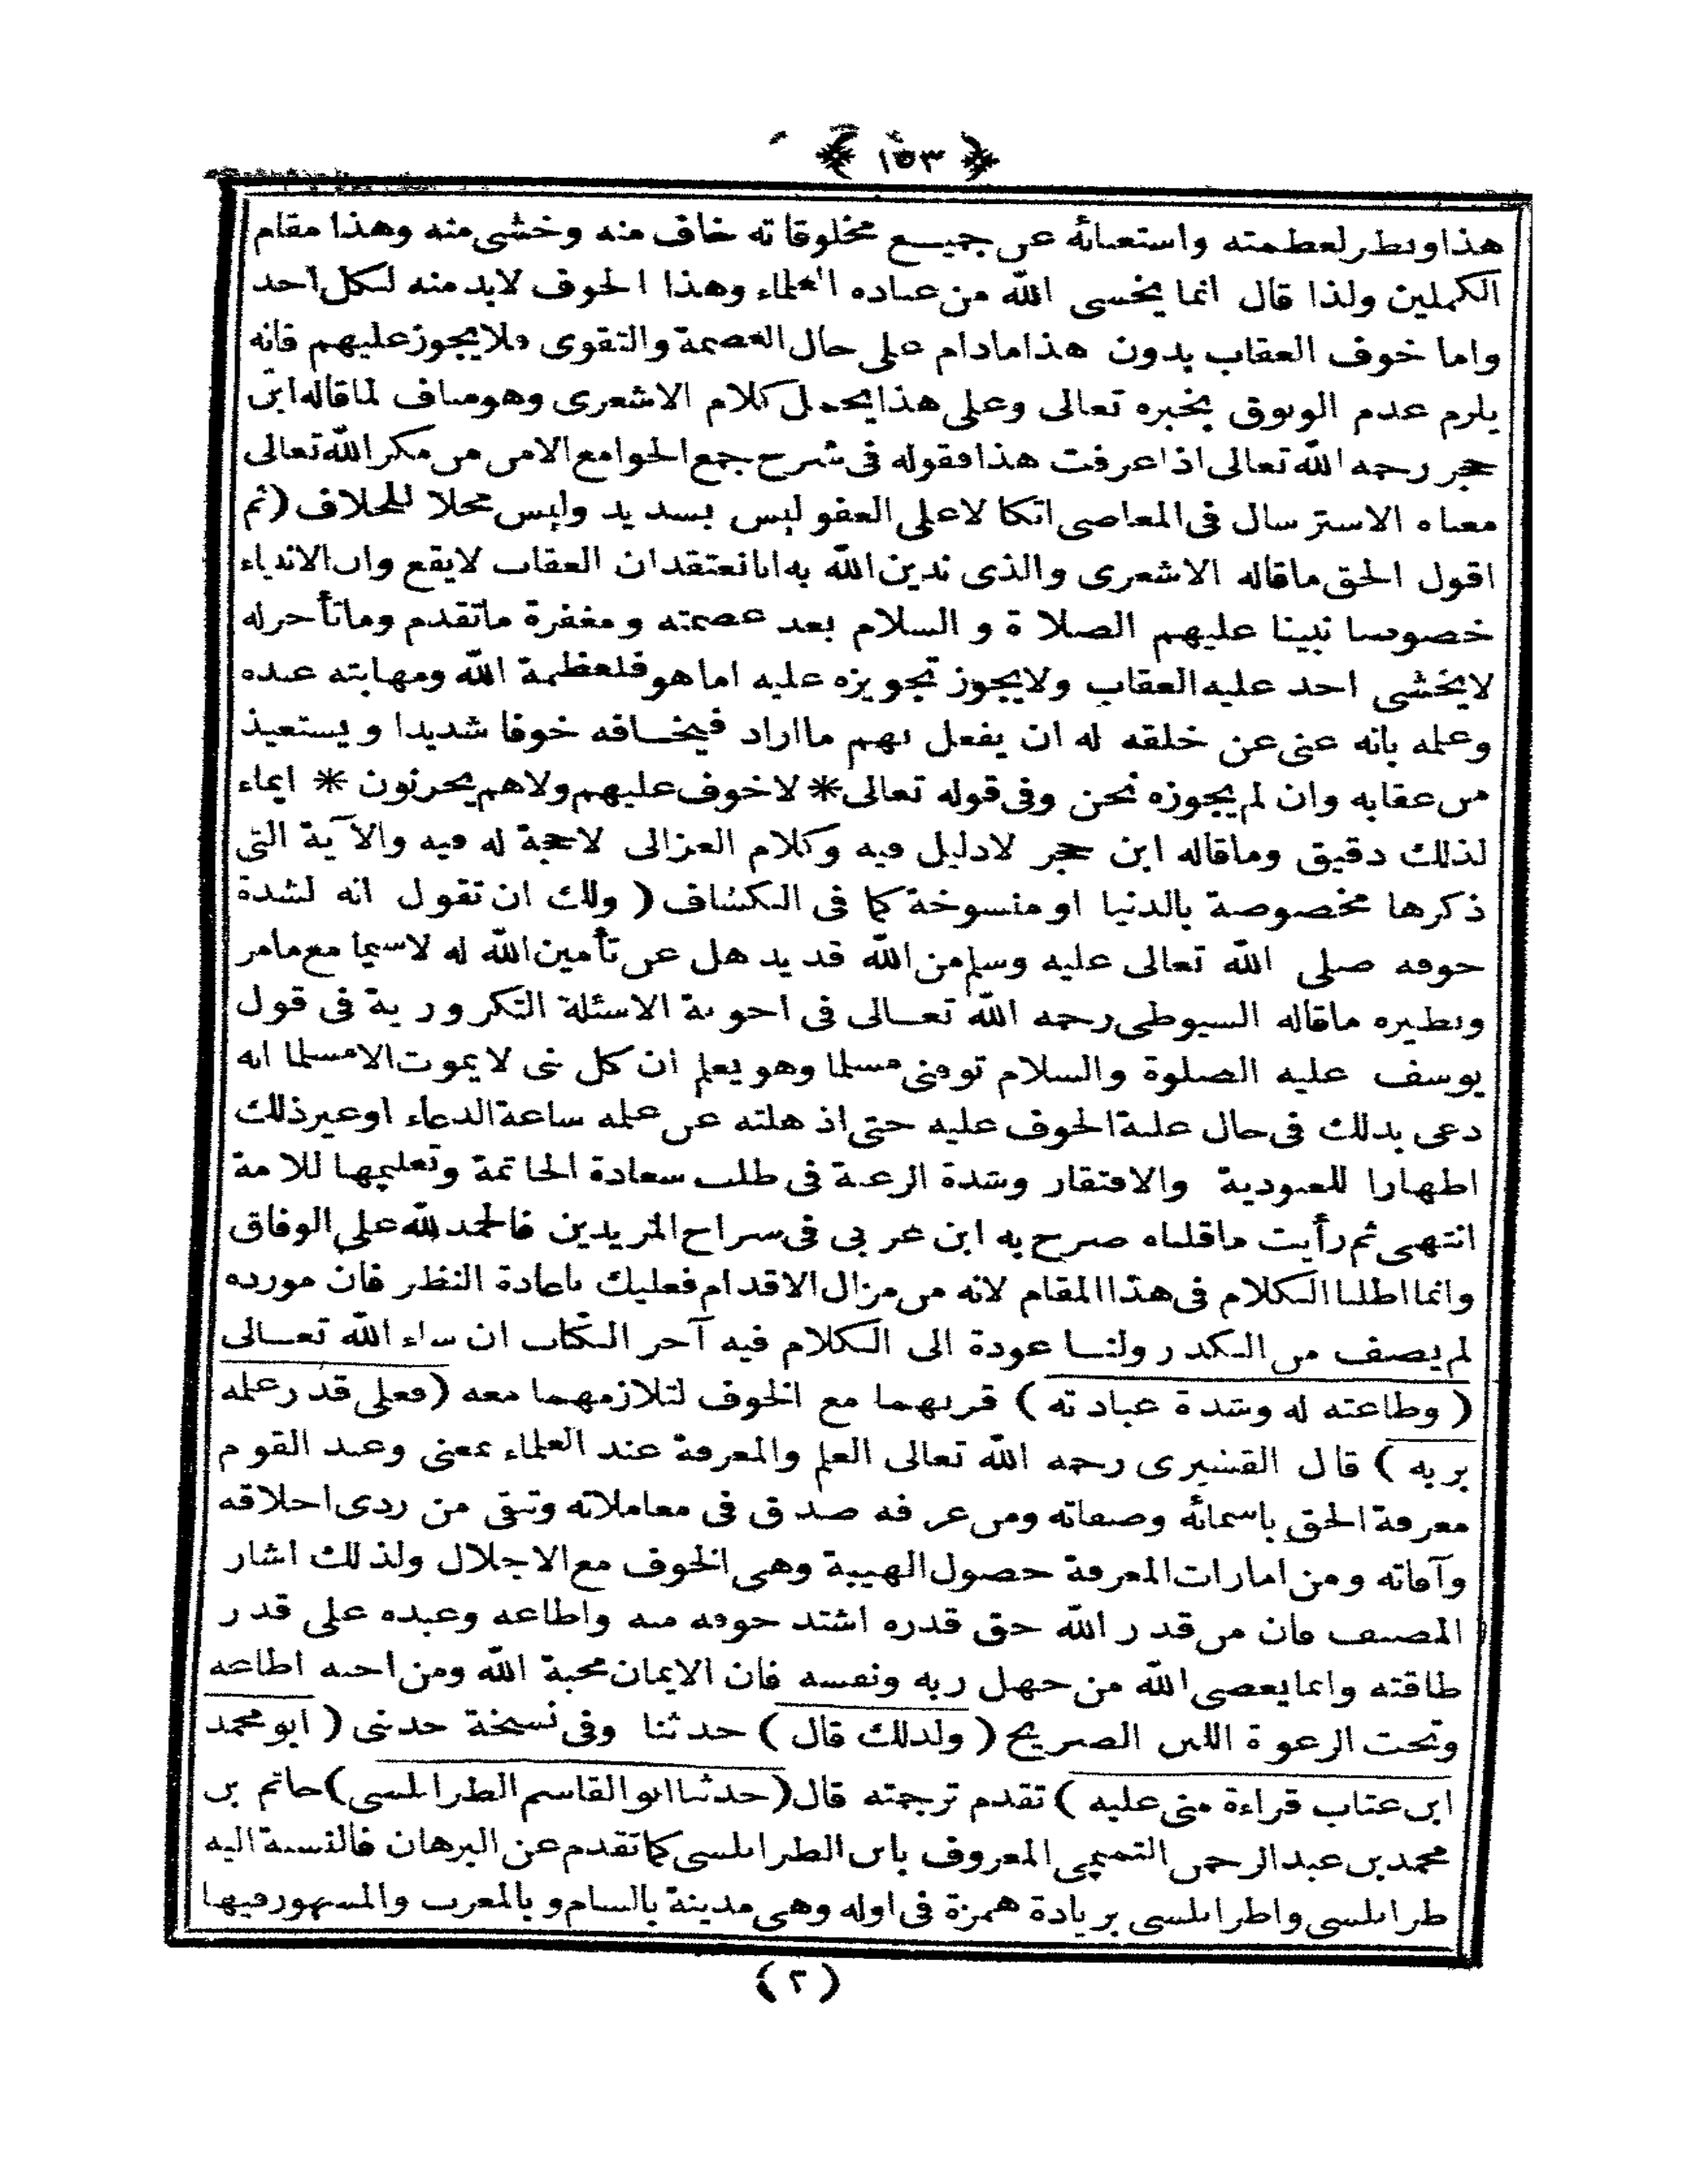 ﴿ ١٥٣ ﴾
هذا ونظر لعظمته واستغنائه عن جميع مخلوقاته خاف منه وخشى منه وهذا مقام
الكملين ولذا قال انما يخشى الله من عباده العلماء وهذا الخوف لابد منه لكل احد
واما خوف العقاب بدون هذا مادام على حال العصمة والتقوى فلا يجوز عليهم فانه
يلزم عدم الوثوق بخبره تعالى وعلى هذا يحمل كلام الاشعرى وهو مناف لما قاله ابن
حجر رحمه الله تعالى اذا عرفت هذا فقوله فى شرح جمع الجوامع الامن من مكر الله تعالى
معناه الاسترسال فى المعاصى اتكالا على العفو ليس بسديد وليس محلا للخلاف (ثم
اقول الحق ماقاله الاشعرى والذى ندين الله به انا نعتقد ان العقاب لايقع وان الانبياء
خصوصا نبينا عليهم الصلاة و السلام بعد عصمته و مغفرة ماتقدم وماتأخر له
لايخشى احد عليه العقاب ولايجوز تجويزه عليه اما هو فلعظمة الله ومهابته عنده
وعلمه بانه غنى عن خلقه له ان يفعل بهم مااراد فيخافه خوفا شديدا و يستعيذ
من عقابه وان لم يجوزه نحن وفى قوله تعالى * لاخوف عليهم ولاهم يحزنون * ايماء
لذلك دقيق وماقاله ابن حجر لادليل فيه وكلام الغزالى لاحجة له فيه والآية التى
ذكرها مخصوصة بالدنيا او منسوخة كما فى الكشاف ( ولك ان تقول انه لشدة
خوفه صلى الله تعالى عليه وسلم من الله قد يذهل عن تأمين الله له لاسيما مع مامر
ونظيره ماقاله السيوطى رحمه الله تعالى فى اجوبة الاسئلة التكرورية فى قول
يوسف عليه الصلوة والسلام توفنى مسلما وهو يعلم ان كل نبى لايموت الا مسلما انه
دعى بذلك فى حال غلبة الخوف عليه حتى اذهلته عن علمه ساعة الدعاء او غير ذلك
اظهارا للعبودية والافتقار وشدة الرغبة فى طلب سعادة الخاتمة وتعليمها للامة
انتهى ثم رأيت ماقلناه صرح به ابن عربى فى سراج المريدين فالحمد لله على الوفاق
وانما اطلنا الكلام فى هذا المقام لانه من مزال الاقدام فعليك باعادة النظر فان مورده
لم يصف من الكدر ولنا عودة الى الكلام فيه آخر الكتاب ان شاء الله تعالى
( وطاعته له وشدة عبادته ) قرنهما مع الخوف لتلازمهما معه (فعلى قدر علمه
بربه ) قال القشيرى رحمه الله تعالى العلم والمعرفة عند العلماء بمعنى وعند القوم
معرفة الحق باسمائه وصفاته ومن عرفه صدق فى معاملاته وتنقى من ردى اخلاقه
وآفاته ومن امارات المعرفة حصول الهيبة وهى الخوف مع الاجلال ولذلك اشار
المصنف فان من قدر الله حق قدره اشتد خوفه منه واطاعه وعبده على قدر
طاقته وانما يعصى الله من جهل ربه ونفسه فان الايمان محبة الله ومن احبه اطاعه
وتحت الرغوة اللبن الصريح ( ولذلك قال ) حدثنا وفى نسخة حدثنى ( ابو محمد
ابن عتاب قراءة منى عليه ) تقدم ترجمته قال (حدثنا ابو القاسم الطرابلسى) حاتم بن
محمد بن عبد الرحمن التميمى المعروف بابن الطرابلسى كما تقدم عن البرهان فالنسبة اليه
طرابلسى واطرابلسى بزيادة همزة فى اوله وهى مدينة بالشام و بالمغرب والمشهور فيها
(٢)